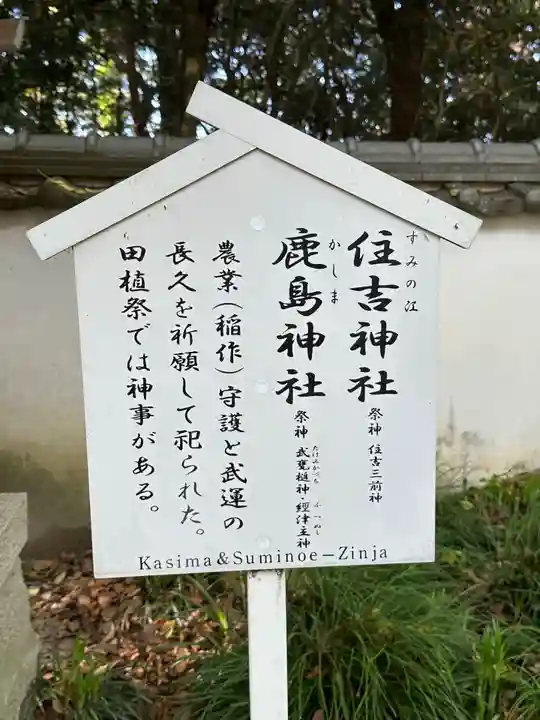 すみの江
住吉神社
祭神 住吉三前神
かしま
鹿島神社
祭神 武甕槌神・經津主神
たけみかづち
ふつぬし
農業(稲作)守護と武運の
長久を祈願して祀られた。
田植祭では神事がある。
Kasima&Suminoe-Zinja